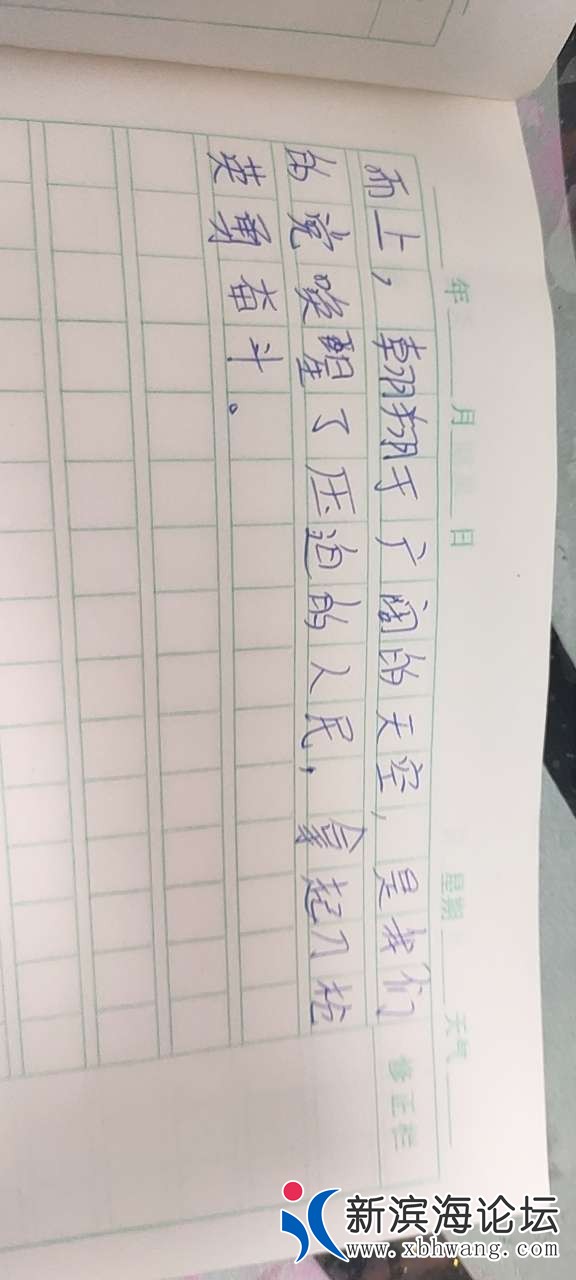 年 月 日 星期 天气
修正栏
而上，翱翔于广阔的天空，是我们
的党唤醒了压迫的人民，拿起刀枪
英勇奋斗。
新滨海论坛
www.xbhwang.com